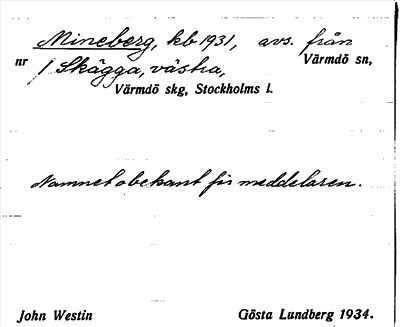 Mineberg, kb 1931, avs. från
nr 1 Skägga, västra, Värmdö sn,
Värmdö skg, Stockholms l.
Namnet obekant för meddelaren.
John Westin Gösta Lundberg 1934.